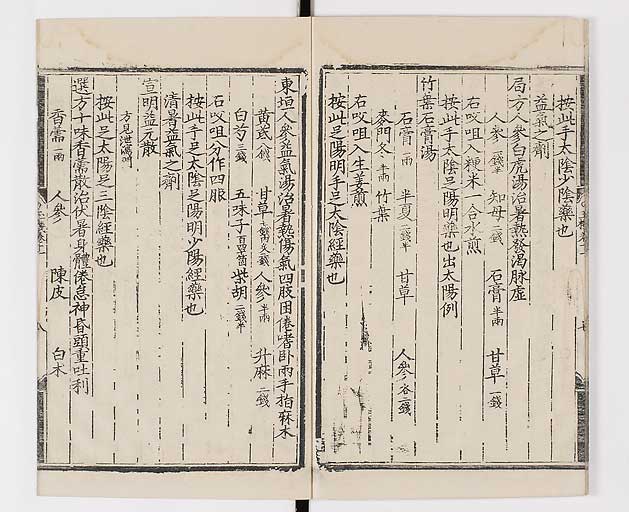 按此手太陰少陰藥也
益氣之劑
局方人參白虎湯治暑熱發渴脉虛
人參 一錢半 知母 二錢 石膏 半兩 甘草 一錢
右㕮咀入粳米一合水煎
按此手太陰足陽明藥也出太陽例
竹葉石膏湯
石膏 一兩 半夏 二錢半 甘草 人參 各二錢
麥門冬 半兩 竹葉
右㕮咀入生姜煎
按此足陽明手足太陰經藥也
東垣人參益氣湯治暑熱傷氣四肢困倦嗜卧兩手指麻木
黃芪 八錢 甘草 人參 半兩 升麻 二錢
白芍 三錢 五味子 柴胡 二錢半
右㕮咀分作四服
按此手足太陰足陽明少陽經藥也
清暑益氣之劑
宣明益元散
方見
按此足太陽足三陰經藥也
選方十味香薷散治伏暑身體倦怠神昏頭重吐利
香薷 一兩 人參 陳皮 白术